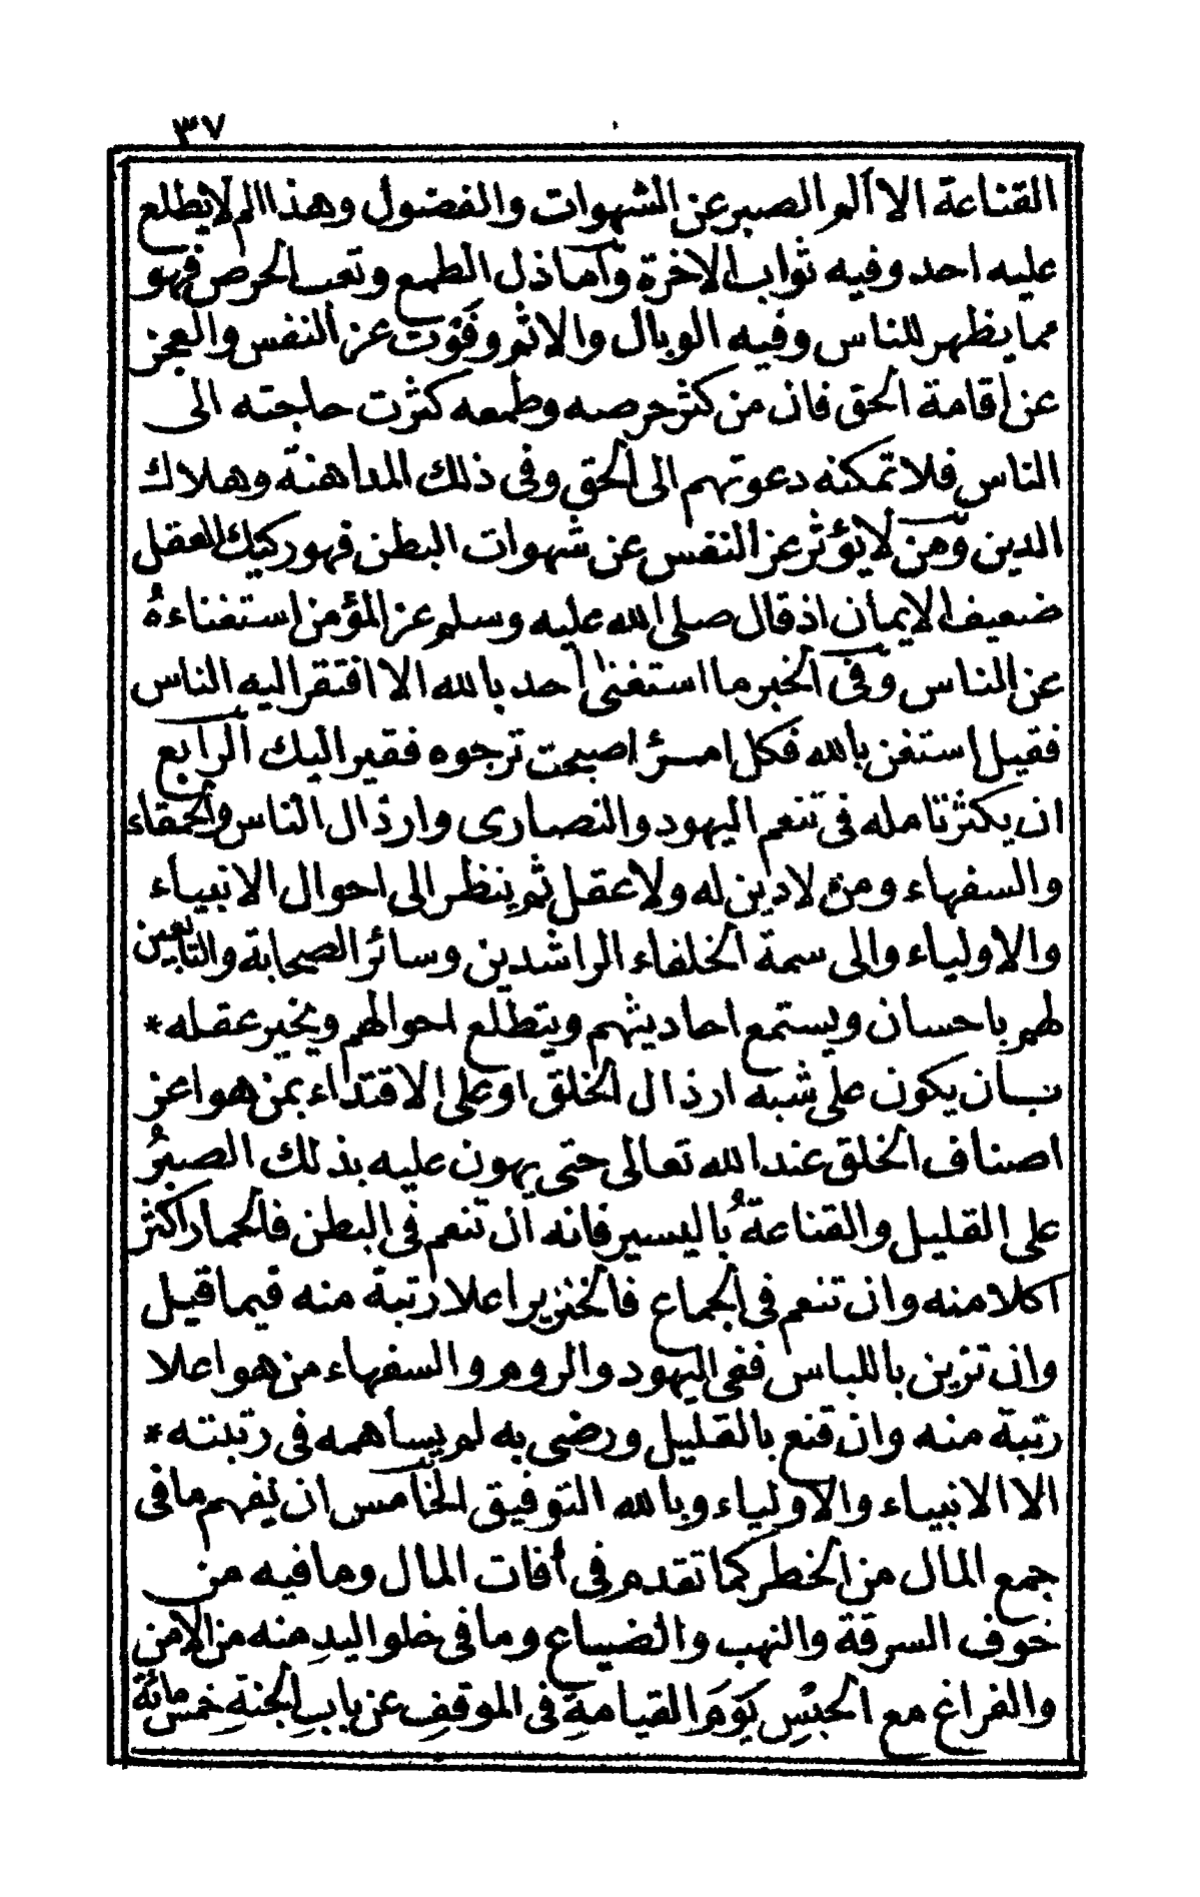 ٣٧
القناعة الا ألم الصبر عن الشهوات والفضول وهذا الم لا يطلع
عليه احد وفيه ثواب الاخرة وأما ذل الطمع وتعب الحرص فهو
مما يظهر للناس وفيه الوبال والاثم وفَوْت عز النفس والعجز
عن اقامة الحق فان من كثر حرصه وطمعه كثرت حاجته الى
الناس فلا تمكنه دعوتهم الى الحق وفى ذلك المداهنة وهلاك
الدين ومن لا يؤثر عز النفس عن شهوات البطن فهو ركيك العقل
ضعيف الايمان اذ قال صلى الله عليه وسلم عز المؤمن استغناءهُ
عن الناس وفى الخبر ما استغنى أحد بالله الا افتقر اليه الناس
فقيل استغن بالله فكل امرئ اصبحت ترجوه فقير اليك الرابع
ان يكثر تامله فى تنعم اليهود والنصارى وارذال الناس والحمقاء
والسفهاء ومن لا دين له ولا عقل ثم ينظر الى احوال الانبياء
والاولياء والى سمة الخلفاء الراشدين وسائر الصحابة والتابعين
لهم باحسان ويستمع احاديثهم ويتطلع احوالهم ويخير عقله *
بـان يكون على شبه ارذال الخلق او على الاقتداء بمن هو اعز
اصناف الخلق عند الله تعالى حتى يهون عليه بذلك الصبرُ
على القليل والقناعةُ باليسير فانه ان تنعم فى البطن فالحمار اكثر
اكلا منه وان تنعم فى الجماع فالخنزير اعلا رتبة منه فيما قيل
وان تزين باللباس ففى اليهود والروم والسفهاء من هو اعلا
رتبة منه وان قنع بالقليل ورضى به لم يساهمه فى رتبته *
الا الانبياء والاولياء وبالله التوفيق الخامس ان يفهم ما فى
جمع المال من الخطر كما تقدم فى أفات المال وما فيه من
خوف السرقة والنهب والضياع وما فى خلو اليدِ منه من الامن
والفراغ مع الحبْسِ يَوْمَ القيامةِ فى الموقفِ عن بابِ الجنةِ خمسمائة